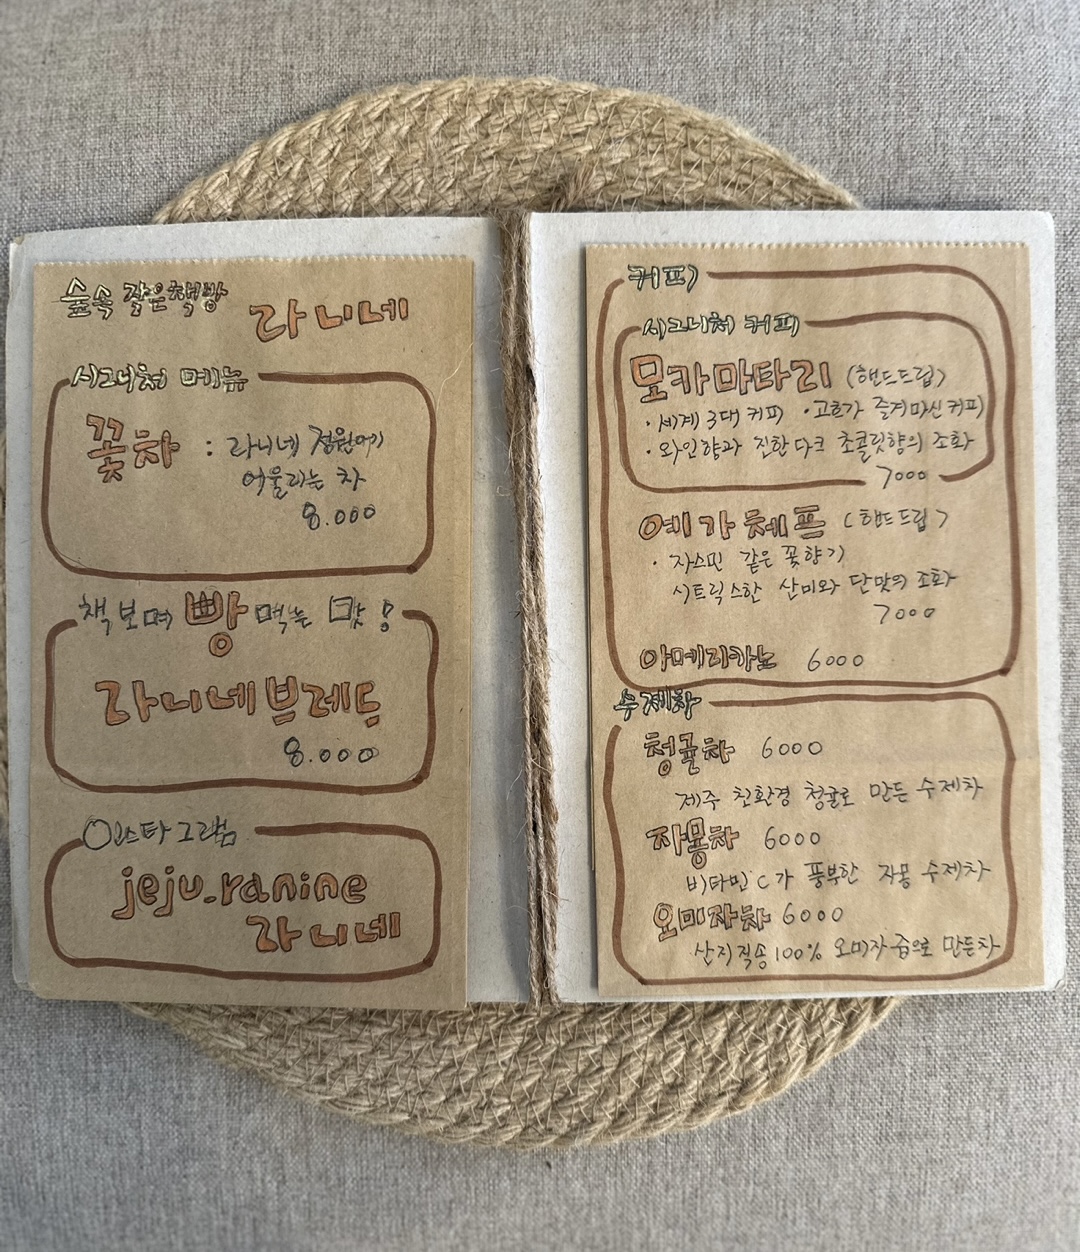 숲속 작은책방
라니네
시그니처 메뉴
꽃차 : 라니네 정원에
어울리는 차
8.000
책 보며 빵 먹는 맛!
라니네브레드
8.000
인스타그램
jeju_ranine
라니네
커피
시그니처 커피
모카마타리 (핸드드립)
· 세계 3대 커피 · 고흐가 즐겨마신 커피
· 와인향과 진한 다크 초콜릿향의 조화
7000
예가체프 (핸드드립)
· 자스민 같은 꽃향기
시트릭스한 산미와 단맛의 조화
7000
아메리카노 6000
수제차
청귤차 6000
제주 친환경 청귤로 만든 수제차
자몽차 6000
비타민C가 풍부한 자몽 수제차
오미자차 6000
산지직송 100% 오미자즙으로 만든차